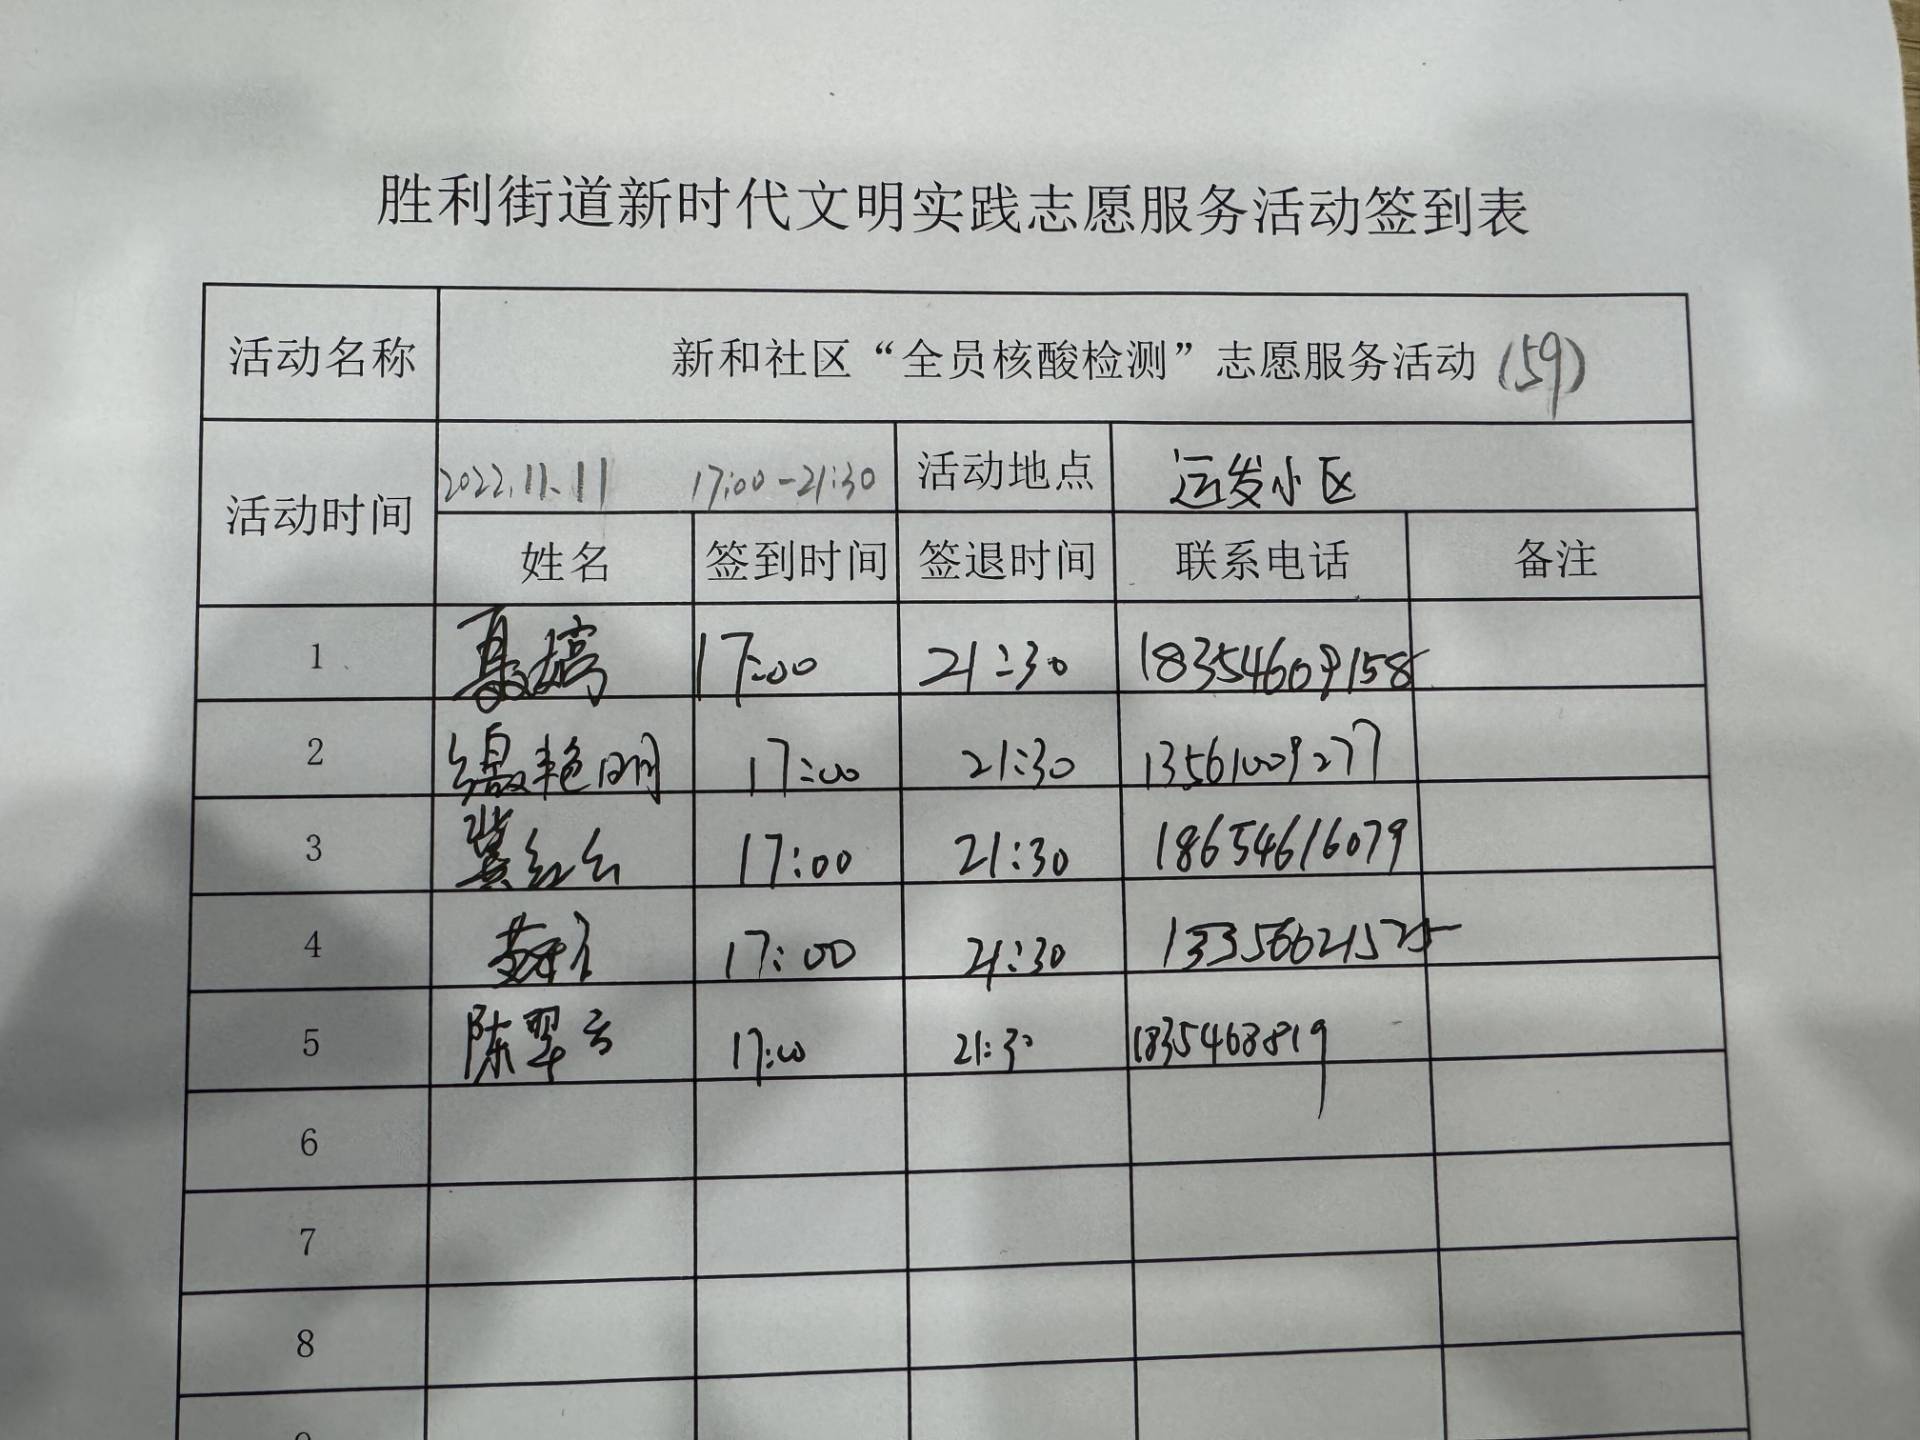 胜利街道新时代文明实践志愿服务活动签到表
活动名称 新和社区“全员核酸检测”志愿服务活动 (59)
活动时间 2022.11.11 17:00-21:30 活动地点 运发小区
姓名 签到时间 签退时间 联系电话 备注
1 17:00 21:30 18354609158
2 缐艳明 17:00 21:30 13561009277
3 冀红云 17:00 21:30 18654616079
4 17:00 21:30 13356621525
5 陈翠云 17:00 21:30 1835468819
6
7
8